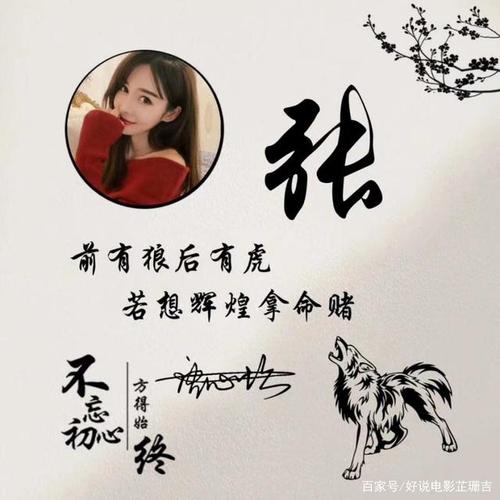 张
前有狼后有虎
若想辉煌拿命赌
不忘初心
方得始终
百家号/好说电影芷珊吉